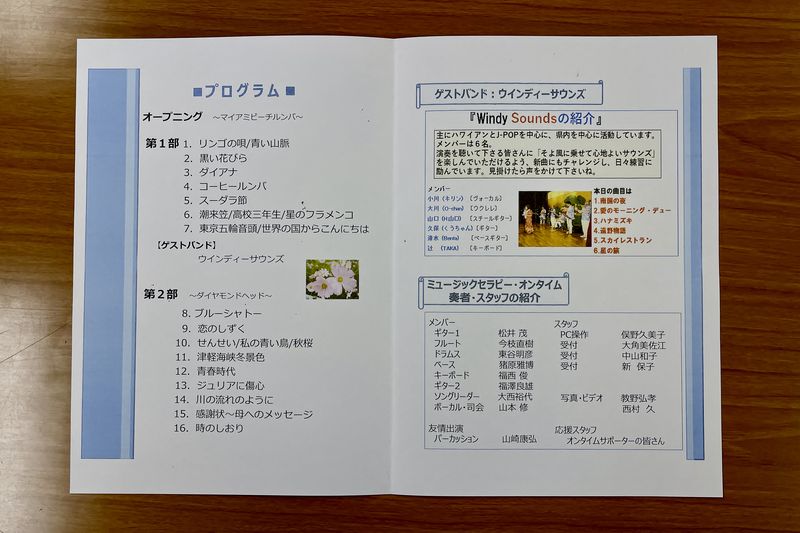 ■プログラム■
オープニング ～マイアミビーチルンバ～
第１部 1. リンゴの唄/青い山脈
2. 黒い花びら
3. ダイアナ
4. コーヒールンバ
5. スーダラ節
6. 潮来笠/高校三年生/星のフラメンコ
7. 東京五輪音頭/世界の国からこんにちは
【ゲストバンド】
ウインディーサウンズ
第２部 ～ダイヤモンドヘッド～
8. ブルーシャトー
9. 恋のしずく
10. せんせい/私の青い鳥/秋桜
11. 津軽海峡冬景色
12. 青春時代
13. ジュリアに傷心
14. 川の流れのように
15. 感謝状～母へのメッセージ
16. 時のしおり
ゲストバンド：ウインディーサウンズ
『Windy Soundsの紹介』
主にハワイアンとJ-POPを中心に、県内を中心に活動しています。
メンバーは６名。
演奏を聴いて下さる皆さんに「そよ風に乗せて心地よいサウンズ」
を楽しんでいただけるよう、新曲にもチャレンジし、日々練習に
励んでいます。見掛けたら声をかけて下さいね。
メンバー
小川（キリン）［ヴォーカル］
大川（O-chan）［ウクレレ］
山口（H山口）［スチールギター］
久保（くうちゃん）［ギター］
清水（Benta）［ベースギター］
辻（TAKA）［キーボード］
本日の曲目は
1.南国の夜
2.愛のモーニング・デュー
3.ハナミズキ
4.遠野物語
5.スカイレストラン
6.星の旅
ミュージックセラピー・オンタイム
奏者・スタッフの紹介
メンバー スタッフ
ギター1 松井 茂 PC操作 俣野久美子
フルート 今枝直樹 受付 大角美佐江
ドラムス 東谷明彦 受付 中山和子
ベース 猪原雅博 受付 新 保子
キーボード 福西 俊
ギター2 福澤良雄
ソングリーダー 大西裕代 写真・ビデオ 教野弘孝
ボーカル・司会 山本 修 西村 久
友情出演 応援スタッフ
パーカッション 山崎康弘 オンタイムサポーターの皆さん